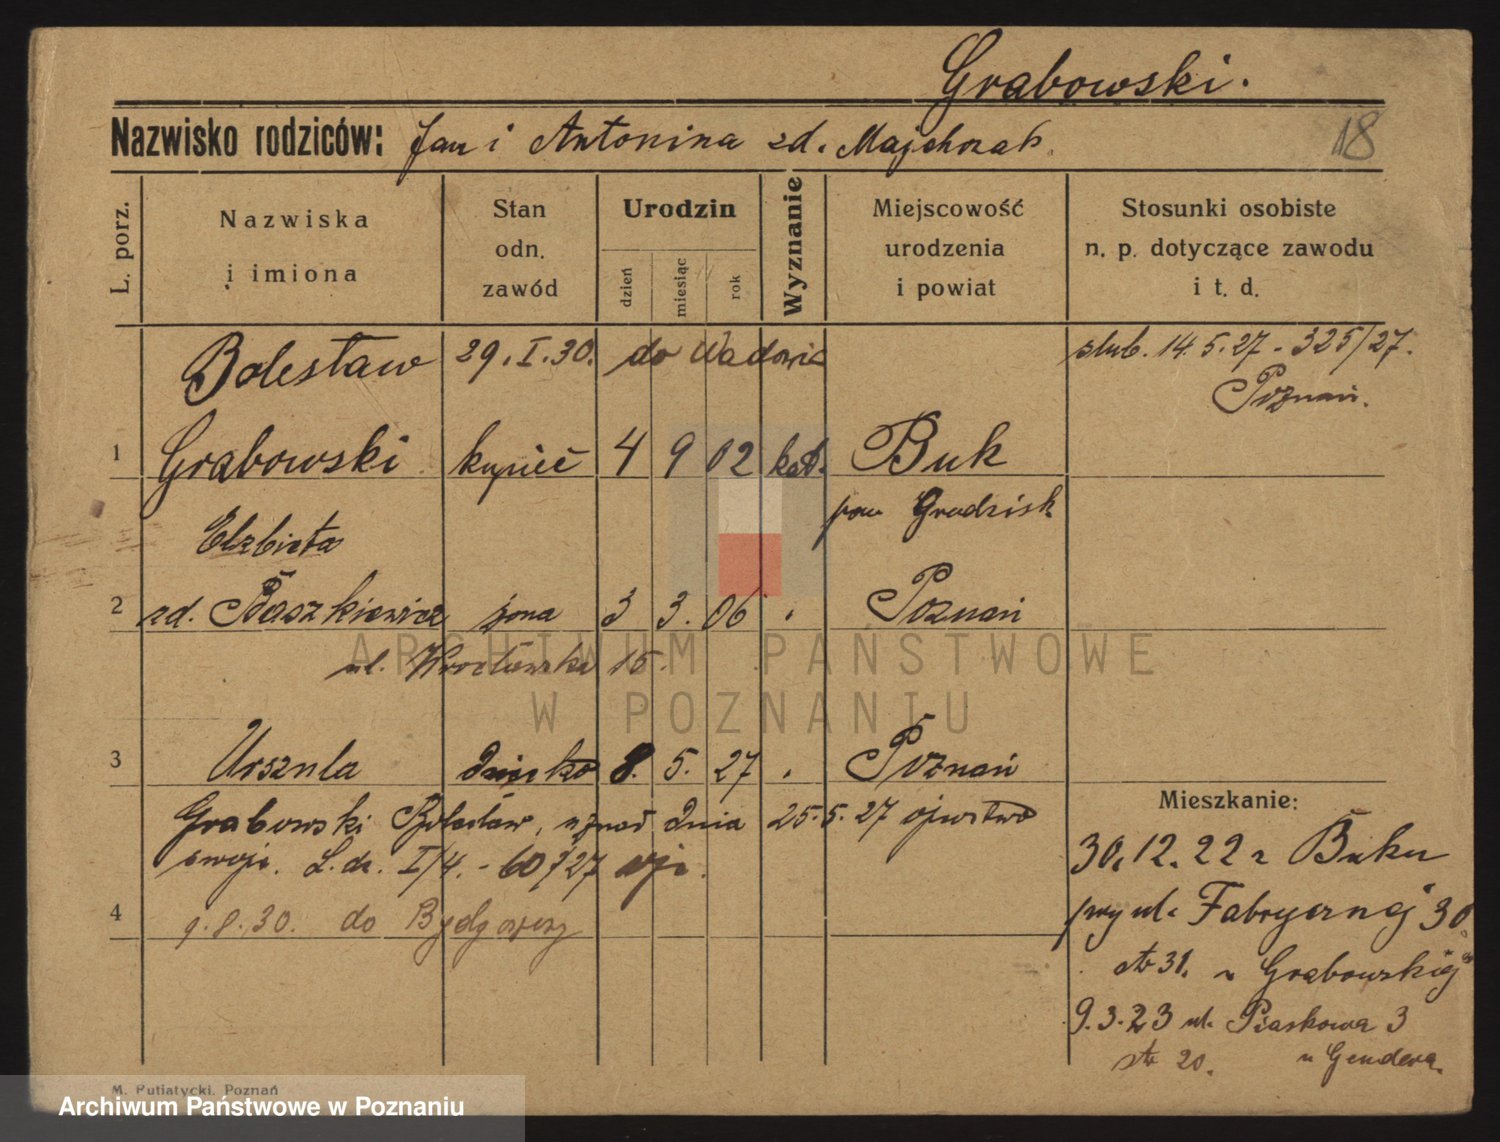 Grabowski.
Nazwisko rodziców: Jan i Antonina zd. Majchrzak.
18
L. porz.
Nazwiska i imiona
Stan odn. zawód
Urodzin
dzień
miesiąc
rok
Wyznanie
Miejscowość urodzenia i powiat
Stosunki osobiste n. p. dotyczące zawodu i t. d.
Bolesław 29. I. 30. do Wadowic ślub. 14. 5. 27 - 325/27.
Poznań.
1 Grabowski kupiec 4 9 02 kat. Buk
pow Grodzisk
Elżbieta
2 zd. Baszkiewicz żona 3 3. 06 Poznań
ul. Wrocławska 15.
ARCHIWUM PAŃSTWOWE
W POZNANIU
3 Urszula dziecko 8. 5. 27 Poznań
Grabowski Bolesław, uznał dnia 25. 5. 27 ojcostwo
swoje. L. dz. I/4. - 60/27
4 9. 8. 30. do Bydgoszczy
Mieszkanie:
30. 12. 22 z Buku
przy ul. Fabrycznej 30.
str 31. u Grabowskiej
9. 3. 23 ul. Piaskowa 3
str 20. u Gendera.
M. Putiatycki, Poznań
Archiwum Państwowe w Poznaniu